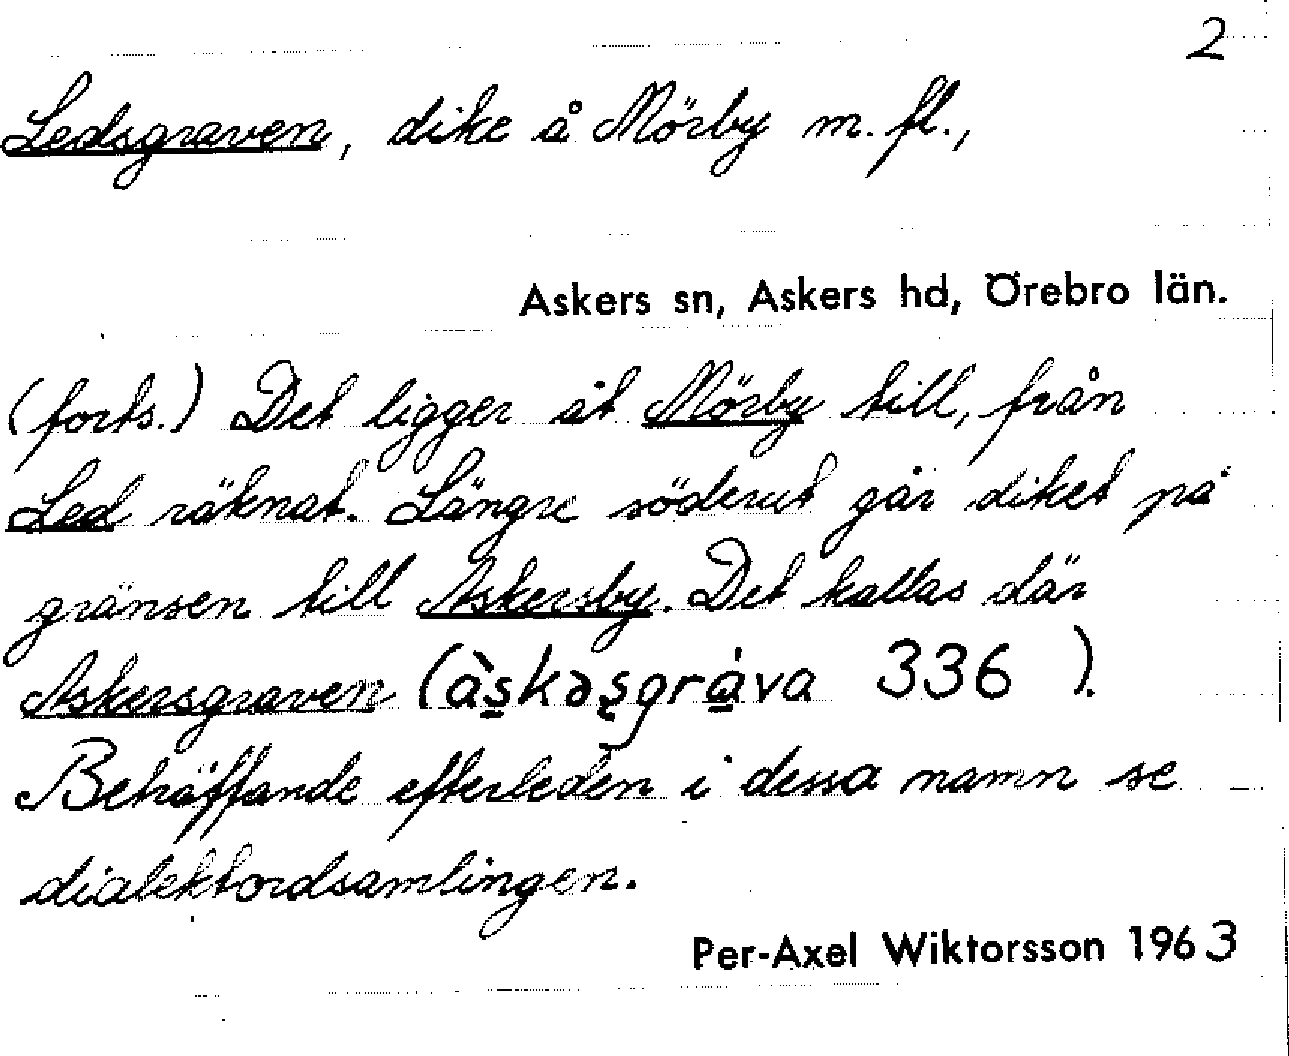 2
Ledsgraven, dike å Mörby m. fl.,
Askers sn, Askers hd, Örebro län.
(forts.) Det ligger åt Mörby till, från
Led räknat. Längre söderut går diket på
gränsen till Askersby. Det kallas där
Askersgraven (às̠kəʂgrá̠va 336 ).
Beträffande efterleden i dessa namn se
dialektordsamlingen.
Per-Axel Wiktorsson 1963